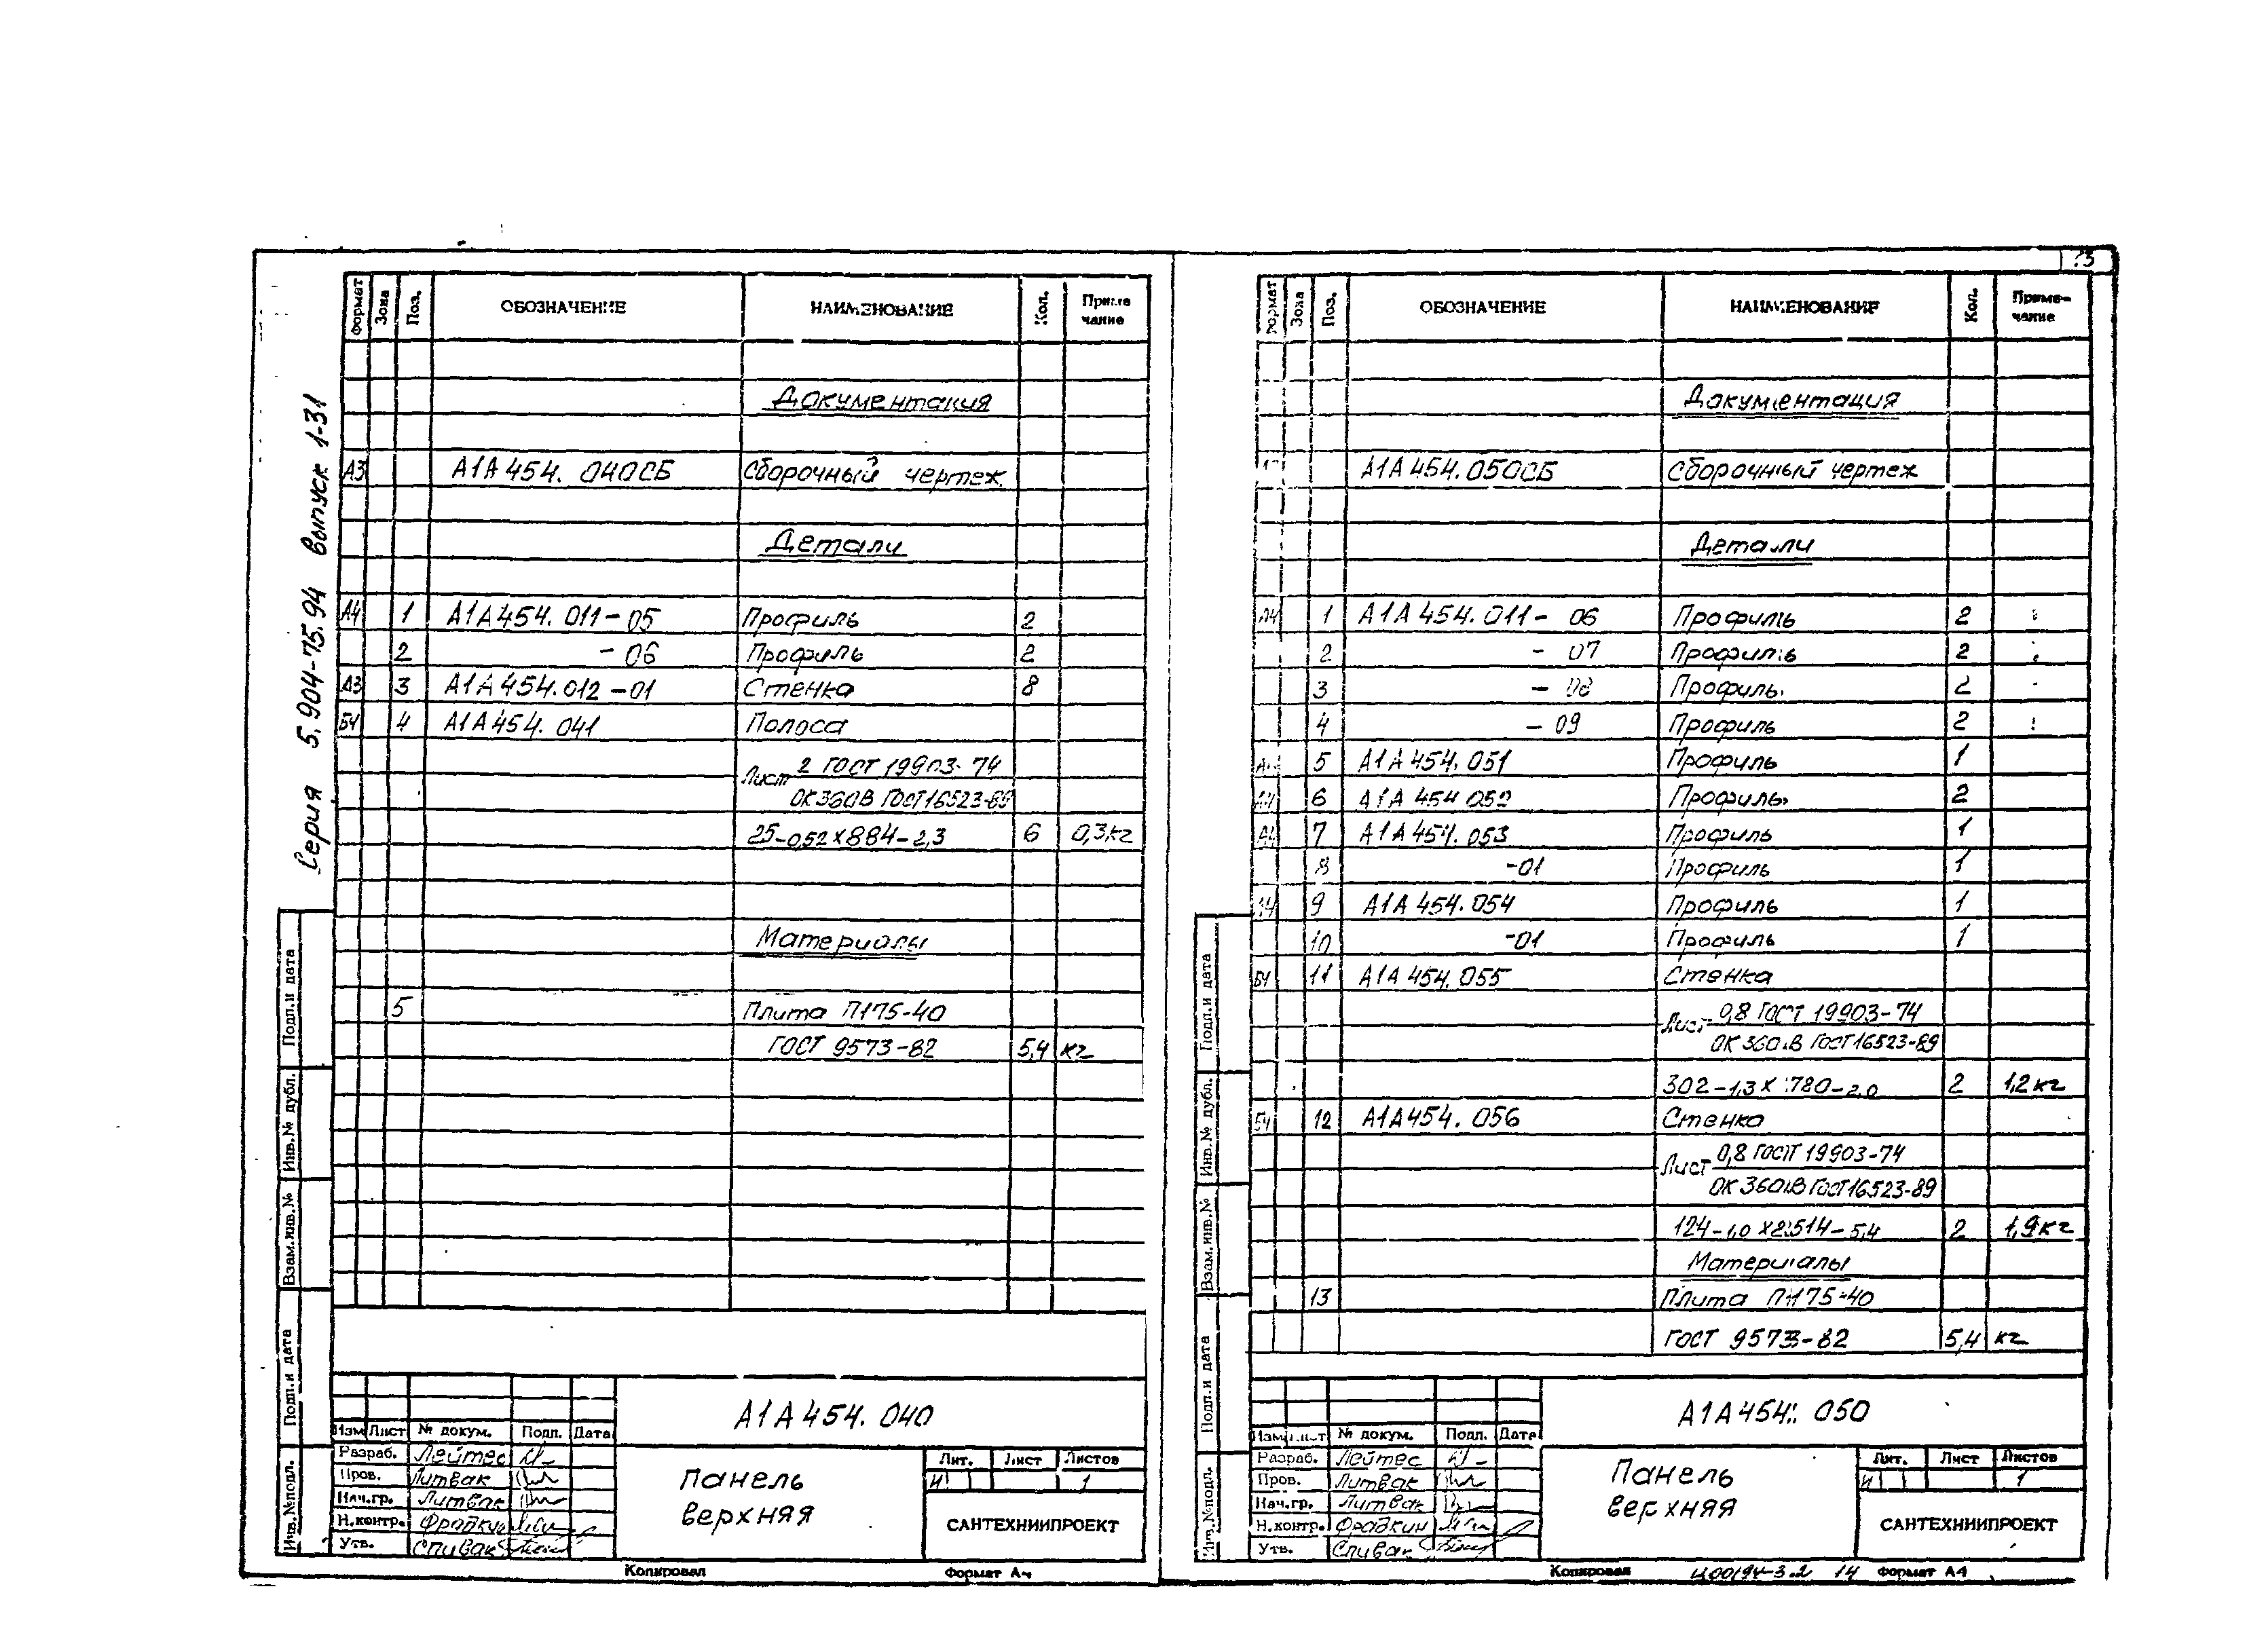 Серия 5.904-75.94 Выпуск 1-31
Формат Зона Поз. ОБОЗНАЧЕНИЕ НАИМЕНОВАНИЕ Кол. Примечание
Документация
А3 А1А454.040СБ Сборочный чертеж
Детали
А4 1 А1А454.011-05 Профиль 2
2 -06 Профиль 2
А3 3 А1А454.012-01 Стенка 8
БЧ 4 А1А454.041 Полоса
Лист 2 ГОСТ 19903-74
ОК360В ГОСТ16523-89
25-0,52х884-2,3 6 0,3кг
Материалы
5 Плита П175-40
ГОСТ 9573-82 5,4 кг
Подп.и дата
Инв.№ дубл.
Взам.инв.№
Подп.и дата
Инв.№подл.
А1А454.040
Изм Лист № докум. Подп. Дата
Разраб. Лейтес
Пров. Литвак
Нач.гр. Литвак
Н.контр. Фрадкин
Утв. Спивак
Панель
верхняя
Лит. Лист Листов
И 1
САНТЕХНИИПРОЕКТ
Копировал Формат А4
Формат Зона Поз. ОБОЗНАЧЕНИЕ НАИМЕНОВАНИЕ Кол. Примечание
Документация
А1А454.050СБ Сборочный чертеж
Детали
А4 1 А1А454.011-06 Профиль 2
2 -07 Профиль 2
3 -08 Профиль 2
4 -09 Профиль 2
5 А1А454.051 Профиль 1
А4 6 А1А454 052 Профиль 2
А4 7 А1А454.053 Профиль 1
8 -01 Профиль 1
А4 9 А1А454.054 Профиль 1
10 -01 Профиль 1
БЧ 11 А1А454.055 Стенка
Лист 0,8 ГОСТ 19903-74
ОК360В ГОСТ16523-89
302-1,3х 780-2,0 2 1,2кг
БЧ 12 А1А454.056 Стенка
Лист 0,8 ГОСТ 19903-74
ОК360В ГОСТ16523-89
124-1,0х2514-5,4 2 1,9кг
Материалы
13 Плита П175-40
ГОСТ 9573-82 5,4 кг
Подп.и дата
Инв.№ дубл.
Взам.инв.№
Подп.и дата
Инв.№подл.
А1А454.050
Изм Лист № докум. Подп. Дата
Разраб. Лейтес
Пров. Литвак
Нач.гр. Литвак
Н.контр. Фрадкин
Утв. Спивак
Панель
верхняя
Лит. Лист Листов
И 1
САНТЕХНИИПРОЕКТ
Копировал Ц00194-3.2 14 Формат А4